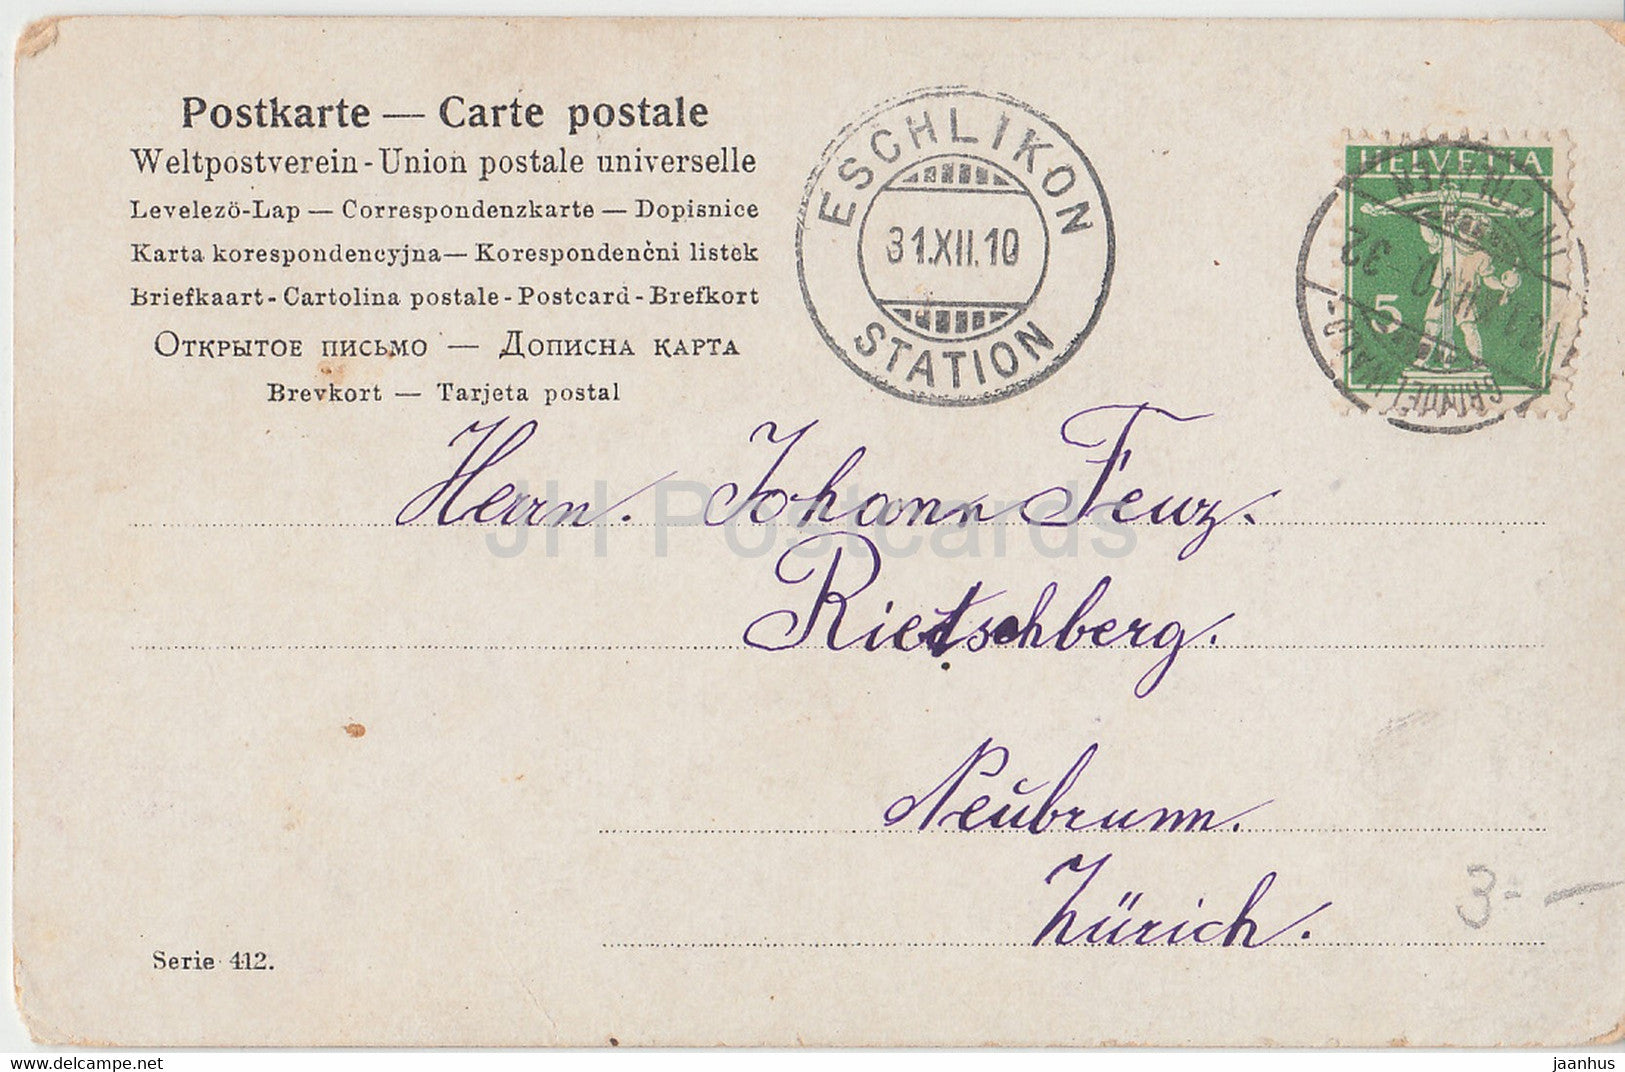 Postkarte — Carte postale
Weltpostverein - Union postale universelle
Levelezö-Lap — Correspondenzkarte — Dopisnice
Karta korespondencyjna — Korespondenčni listek
Briefkaart - Cartolina postale - Postcard - Brefkort
Открытое письмо — Дописна карта
Brevkort — Tarjeta postal
ESCHLIKON
31.XII.10
STATION
HELVETIA
5
GRINDELWALD
INTERLAKEN
32
Herrn. Johann Feuz.
Rietschberg.
Neŭbrunn.
Zürich.
3-
Serie 412.
JH Postcards
www.delcampe.net
jaanhus